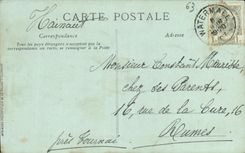 63
CARTE POSTALE
Hainaut
Correspondance
Adresse
Tous les pays étrangers n'acceptent pas
la correspondance au recto, se renseigner à la Poste
WATERMAEL
Monsieur Constant
chez ses Parents,
16, rue de la Cure, 16
Rumes
près Tournai